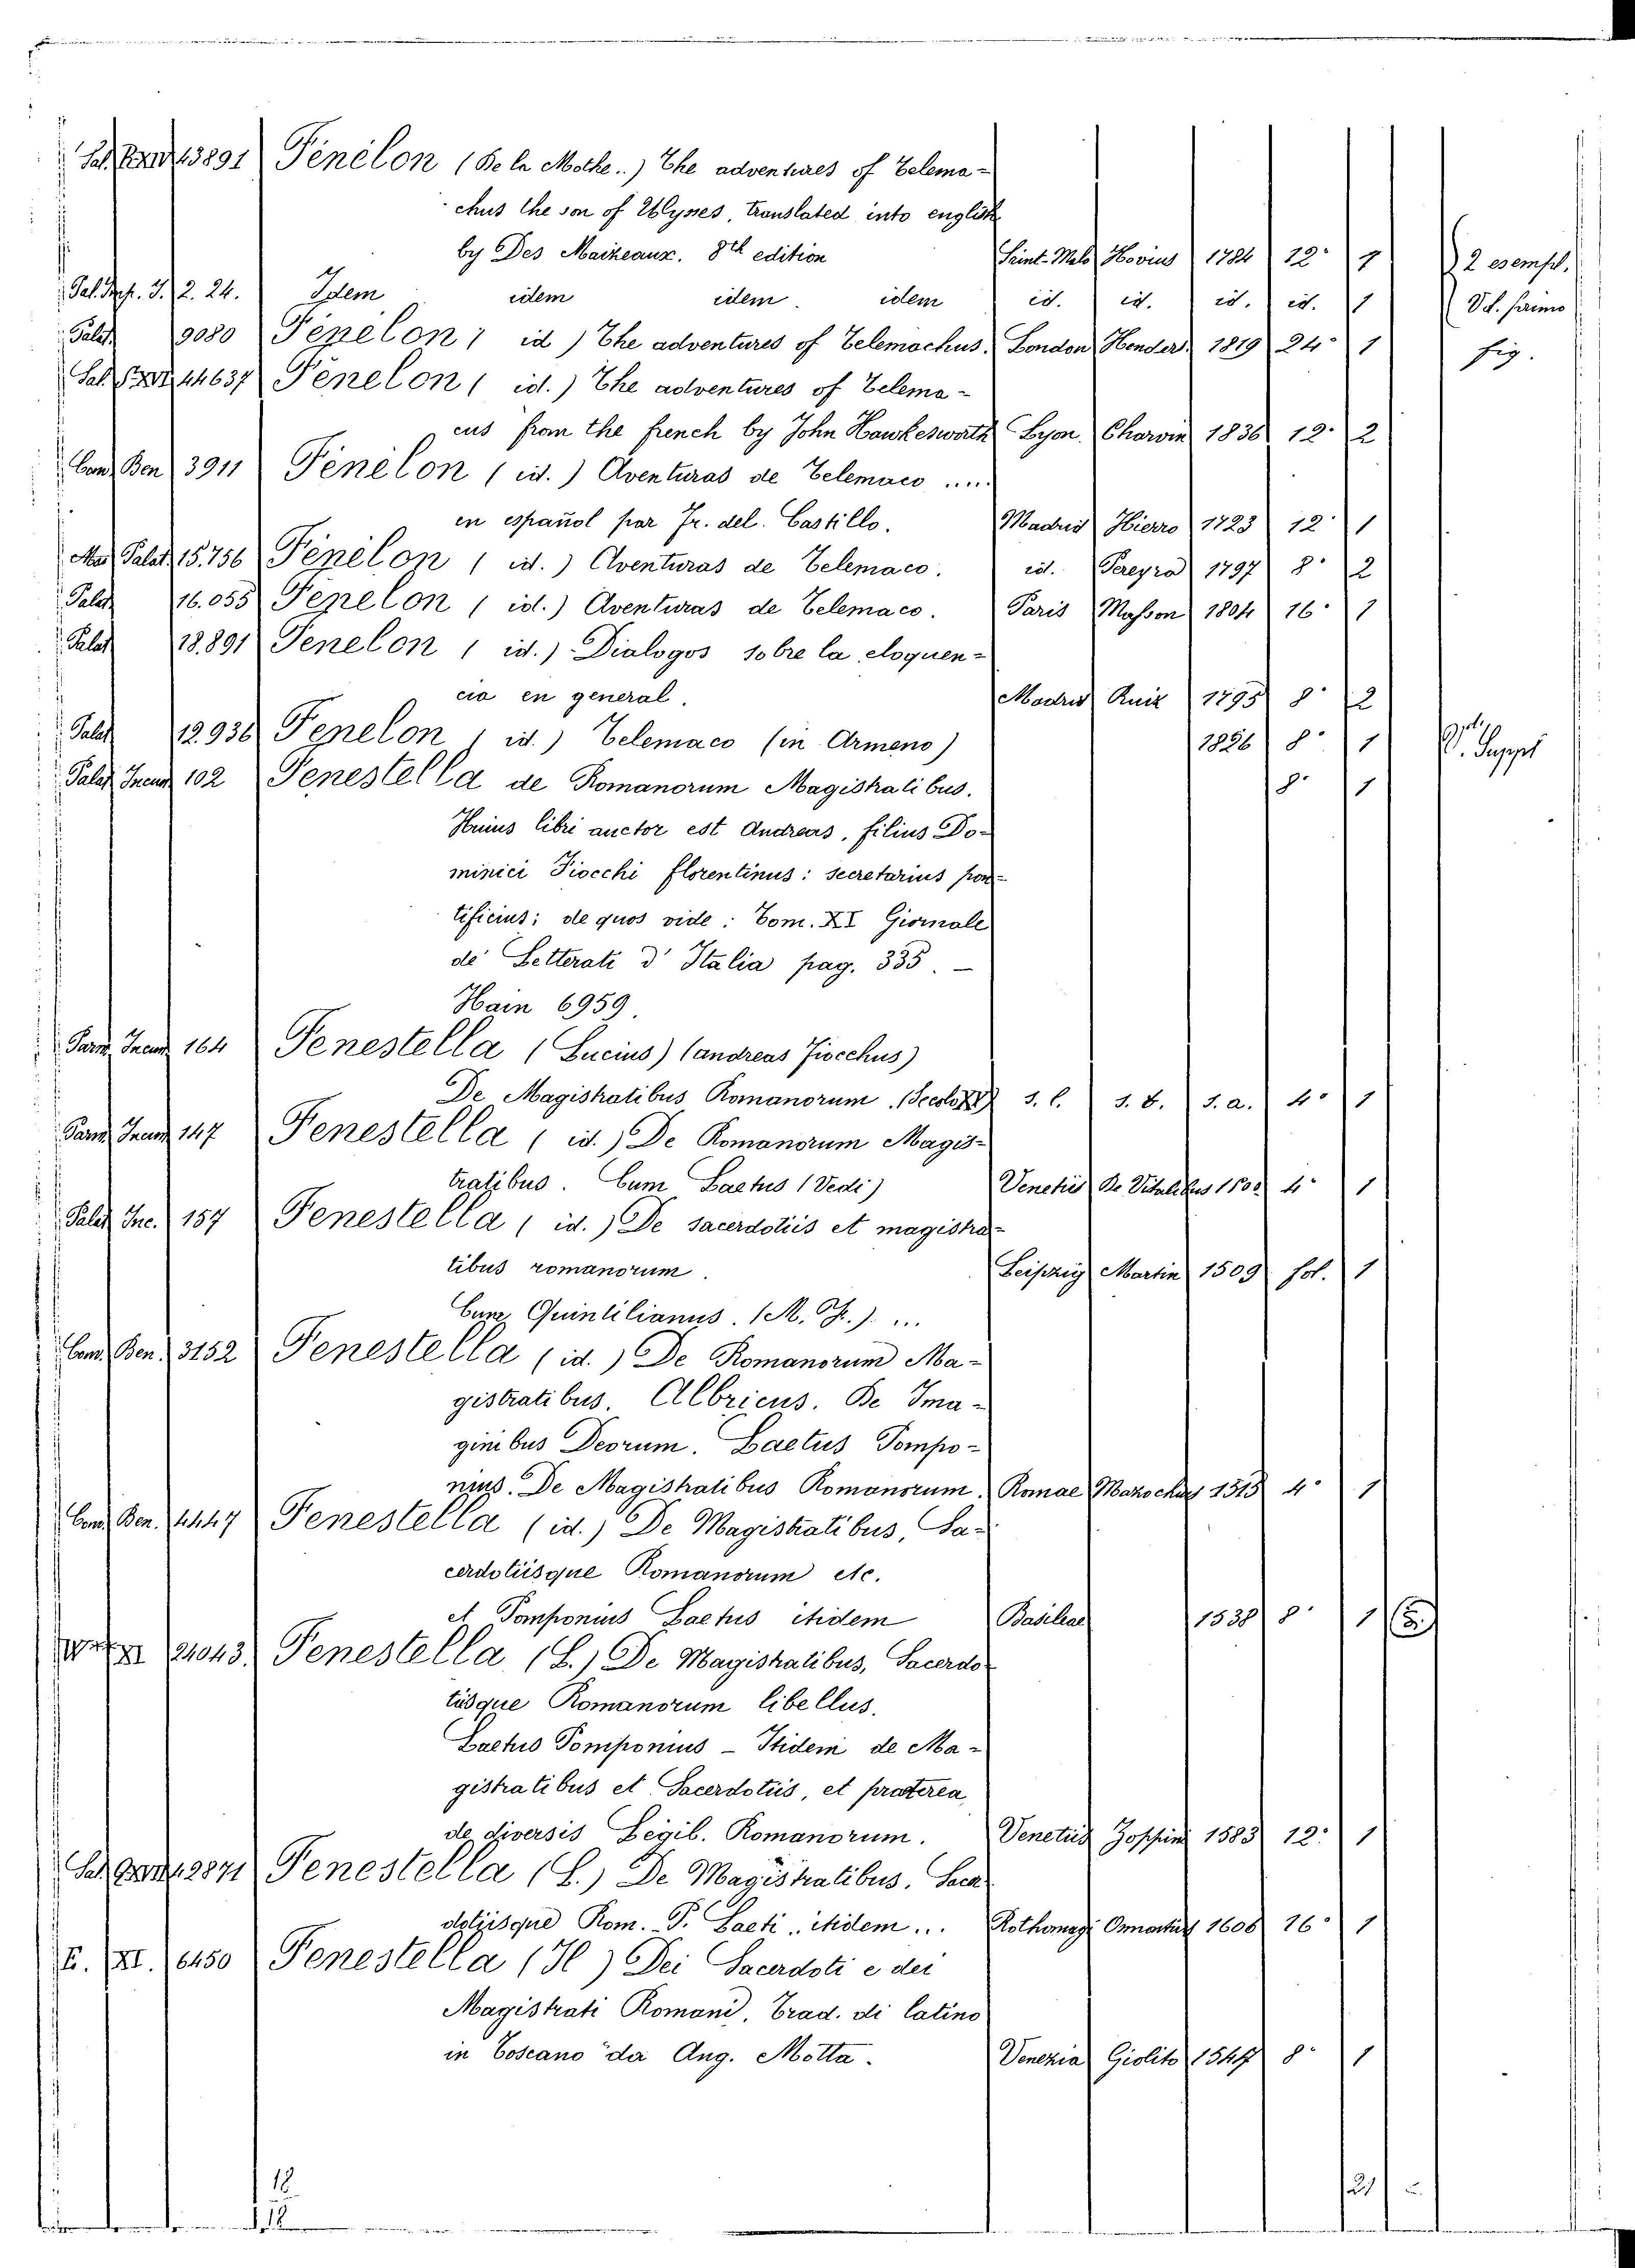 13891 Fénélon (De la Mothe..) The adventures of Telema-
chus the son of Ulysses, translated into english
by Des Maizeaux. 8th edition Saint-Malo Hovius 1784 12° 1 2 esempl.
2. 24. Idem idem idem. idem id. id. id. id. 1 primo
Palat 9080 Fénélon ( id ) The adventures of Telemachus. London Henders. 1819 24° 1 fig.
44637 Fénelon ( id.) The adventures of Telema-
cus from the french by John Hawkesworth Lyon Charvin 1836 12° 2
Com. Ben 3911 Fénélon ( id.) Aventuras de Telemaco .....
en español par Fr. del. Castillo. Madrid Hierro 1723 12° 1
Palat. 15.756 Fénélon ( id.) Aventuras de Telemaco. id. Pereyra 1797 8° 2
Palat 16.055 Fenelon ( id.) Aventuras de Telemaco. Paris Masson 1804 16° 1
Palat 18.891 Fenelon ( id.) Dialogos sobre la eloquen-
cia en general. Madrid Ruiz 1795 8° 2
Palat 12.936 Fenelon ( id.) Telemaco (in Armeno) 1826 8° 1
Palat Incun 102 Fenestella de Romanorum Magistratibus. 8° 1
Huius libri auctor est Andreas, filius Do-
minici Fiocchi florentinus: secretarius pon-
tificius; de quos vide: Tom. XI Giornale
de' Letterati d' Italia pag. 335. —
Hain 6959
Parm. Incun 164 Fenestella (Lucius) (andreas Fiocchus)
De Magistratibus Romanorum. (Secolo XV) s. l. s. t. s. a. 4° 1
Parm. Incun 147 Fenestella ( id.) De Romanorum Magis-
tratibus. Cum Laetus (Vedi) Venetiis De Vitalibus 4° 1
Palat Inc. 157 Fenestella ( id.) De sacerdotiis et magistra-
tibus romanorum. Leipzig Martin 1509 fol. 1
Cum Quintilianus. (M. F.). ...
Com. Ben. 3152 Fenestella (id.) De Romanorum Ma-
gistratibus. Albricus. De Ima-
ginibus Deorum. Laetus Pompo-
nius. De Magistratibus Romanorum. Romae Mazochus 1515 4° 1
Com. Ben. 4447 Fenestella (id.) De Magistratibus, Sa-
cerdotiisque Romanorum etc.
et Pomponius Laetus itidem Basileae 1538 8° 1
24043. Fenestella (L.) De Magistratibus, Sacerdo-
tiisque Romanorum libellus.
Laetus Pomponius – Itidem de Ma-
gistratibus et Sacerdotiis, et praeterea
de diversis Legib. Romanorum. Venetiis Zoppini 1583 12° 1
Fenestella (L.) De Magistratibus. Sacer
dotiisque Rom. - P. Laeti. itidem ... Rothomagi 1606 16° 1
XI. 6450 Fenestella (H) Dei Sacerdoti e dei
Magistrati Romani. Trad. di latino
in Toscano da Ang. Motta. Venezia Giolito 8° 1
18 21
18